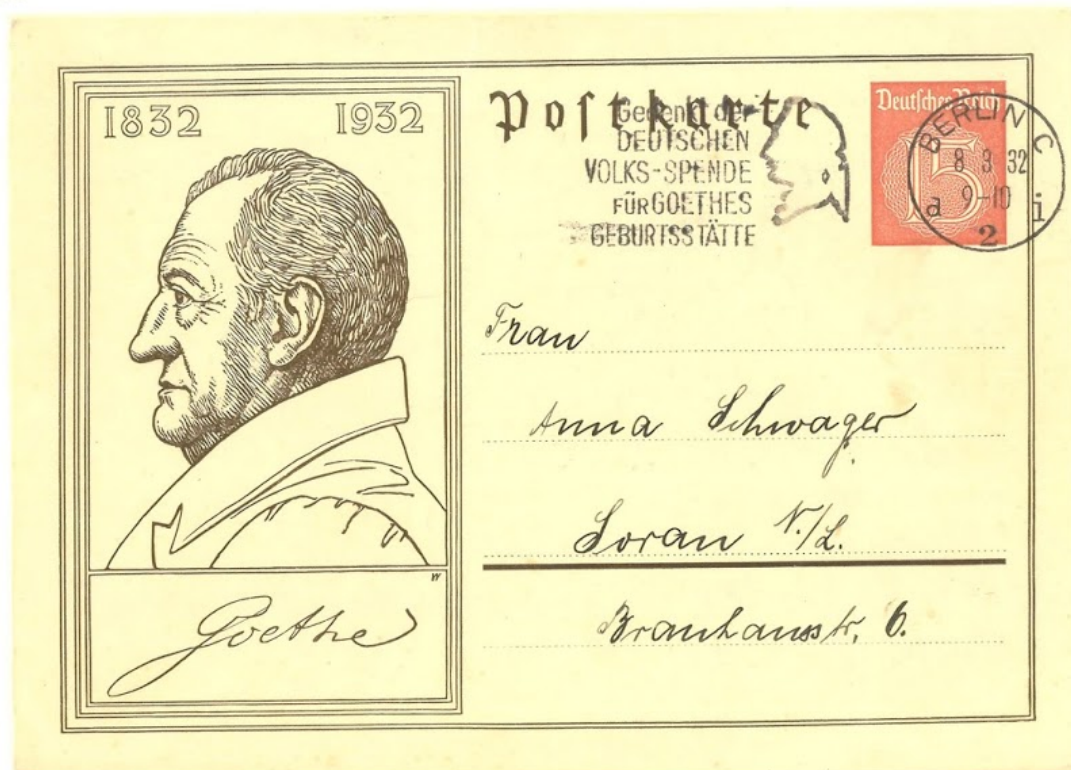 1832 1932
Goethe
Postkarte
Gedenkt der
DEUTSCHEN
VOLKS-SPENDE
FÜR GOETHES
GEBURTSSTÄTTE
Deutsches Reich
15
BERLIN C
8 3 32
9-10
a i
2
Frau
Anna Schwager
Soran N./L.
Brauhausstr. 6.